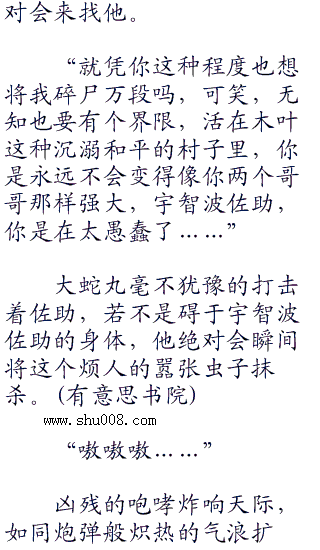 对会来找他。
“就凭你这种程度也想
将我碎尸万段吗，可笑，无
知也要有个界限，活在木叶
这种沉溺和平的村子里，你
是永远不会变得像你两个哥
哥那样强大，宇智波佐助，
你是在太愚蠢了……”
大蛇丸毫不犹豫的打击
着佐助，若不是碍于宇智波
佐助的身体，他绝对会瞬间
将这个烦人的嚣张虫子抹
杀。(有意思书院)
www.shu008.com
“嗷嗷嗷……”
凶残的咆哮炸响天际，
如同炮弹般炽热的气浪扩